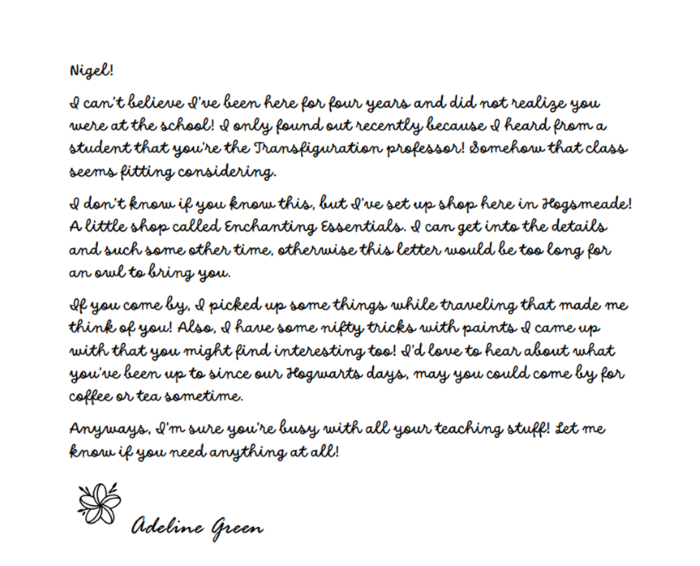 Nigel!
I can't believe I've been here for four years and did not realize you
were at the school! I only found out recently because I heard from a
student that you're the Transfiguration professor! Somehow that class
seems fitting considering.
I don't know if you know this, but I've set up shop here in Hogsmeade!
A little shop called Enchanting Essentials. I can get into the details
and such some other time, otherwise this letter would be too long for
an owl to bring you.
If you come by, I picked up some things while traveling that made me
think of you! Also, I have some nifty tricks with paints I came up
with that you might find interesting too! I'd love to hear about what
you've been up to since our Hogwarts days, may you could come by for
coffee or tea sometime.
Anyways, I'm sure you're busy with all your teaching stuff! Let me
know if you need anything at all!
Adeline Green